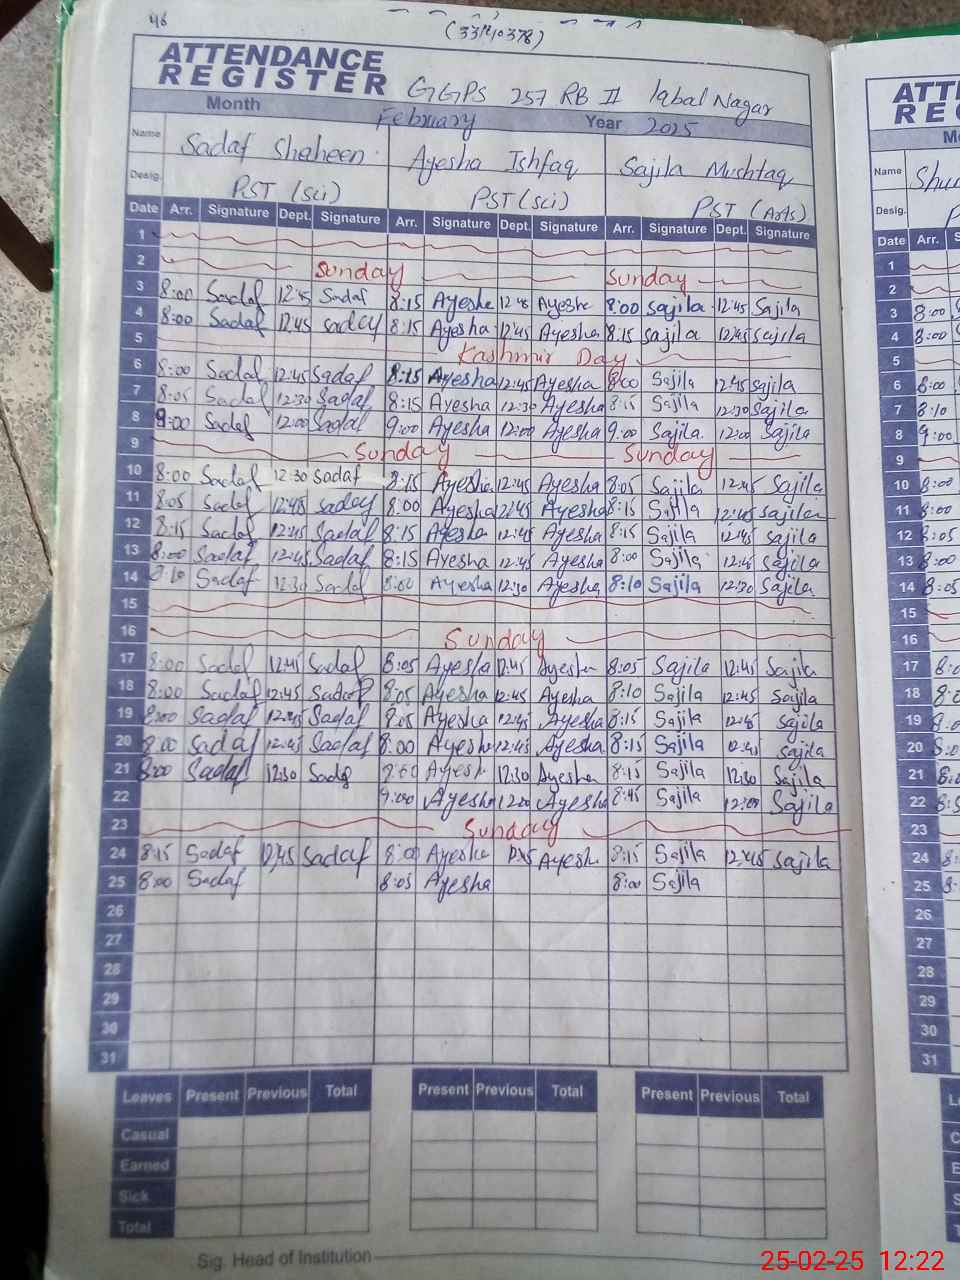 46
(33210378)
ATTENDANCE
REGISTER GGPS 257 RB II Iqbal Nagar
Month February Year 2025
Name Sadaf Shaheen Ayesha Ishfaq Sajila Mushtaq
Desig. PST (Sci) PST (Sci) PST (Arts)
Date Arr. Signature Dept. Signature Arr. Signature Dept. Signature Arr. Signature Dept. Signature
1
2 Sunday Sunday
3 8:00 Sadaf 12:45 Sadaf 8:15 Ayesha 12:45 Ayesha 8:00 Sajila 12:45 Sajila
4 8:00 Sadaf 12:45 Sadaf 8:15 Ayesha 12:45 Ayesha 8:15 Sajila 12:45 Sajila
5 Kashmir Day
6 8:00 Sadaf 12:45 Sadaf 8:15 Ayesha 12:45 Ayesha 8:00 Sajila 12:45 Sajila
7 8:05 Sadaf 12:30 Sadaf 8:15 Ayesha 12:30 Ayesha 8:15 Sajila 12:30 Sajila
8 9:00 Sadaf 12:00 Sadaf 9:00 Ayesha 12:00 Ayesha 9:00 Sajila 12:00 Sajila
9 Sunday Sunday
10 8:00 Sadaf 12:30 Sadaf 8:15 Ayesha 12:45 Ayesha 8:05 Sajila 12:45 Sajila
11 8:05 Sadaf 12:45 Sadaf 8:00 Ayesha 12:45 Ayesha 8:15 Sajila 12:45 Sajila
12 8:15 Sadaf 12:45 Sadaf 8:15 Ayesha 12:45 Ayesha 8:15 Sajila 12:45 Sajila
13 8:00 Sadaf 12:45 Sadaf 8:15 Ayesha 12:45 Ayesha 8:00 Sajila 12:45 Sajila
14 8:10 Sadaf 12:30 Sadaf 8:00 Ayesha 12:30 Ayesha 8:10 Sajila 12:30 Sajila
15
16 Sunday
17 8:00 Sadaf 12:45 Sadaf 8:05 Ayesha 12:45 Ayesha 8:05 Sajila 12:45 Sajila
18 8:00 Sadaf 12:45 Sadaf 8:05 Ayesha 12:45 Ayesha 8:10 Sajila 12:45 Sajila
19 8:00 Sadaf 12:45 Sadaf 8:05 Ayesha 12:45 Ayesha 8:15 Sajila 12:45 Sajila
20 8:00 Sadaf 12:45 Sadaf 8:00 Ayesha 12:45 Ayesha 8:15 Sajila 12:45 Sajila
21 8:00 Sadaf 12:30 Sadaf 8:00 Ayesha 12:30 Ayesha 8:15 Sajila 12:30 Sajila
22 9:00 Ayesha 12:00 Ayesha 8:45 Sajila 12:00 Sajila
23 Sunday
24 8:15 Sadaf 12:45 Sadaf 8:00 Ayesha 12:45 Ayesha 8:15 Sajila 12:45 Sajila
25 8:00 Sadaf 8:05 Ayesha 8:00 Sajila
26
27
28
29
30
31
Leaves Present Previous Total Present Previous Total Present Previous Total
Casual
Earned
Sick
Total
Sig. Head of Institution
Name
Desig.
Date Arr.
1
2
3 8:00
4 8:00
5
6 8:00
7 8:10
8 9:00
9
10 8:00
11 8:00
12 8:05
13 8:00
14 8:05
15
16
17
18
19
20
21
22
23
24
25
26
27
28
29
30
31
25-02-25 12:22